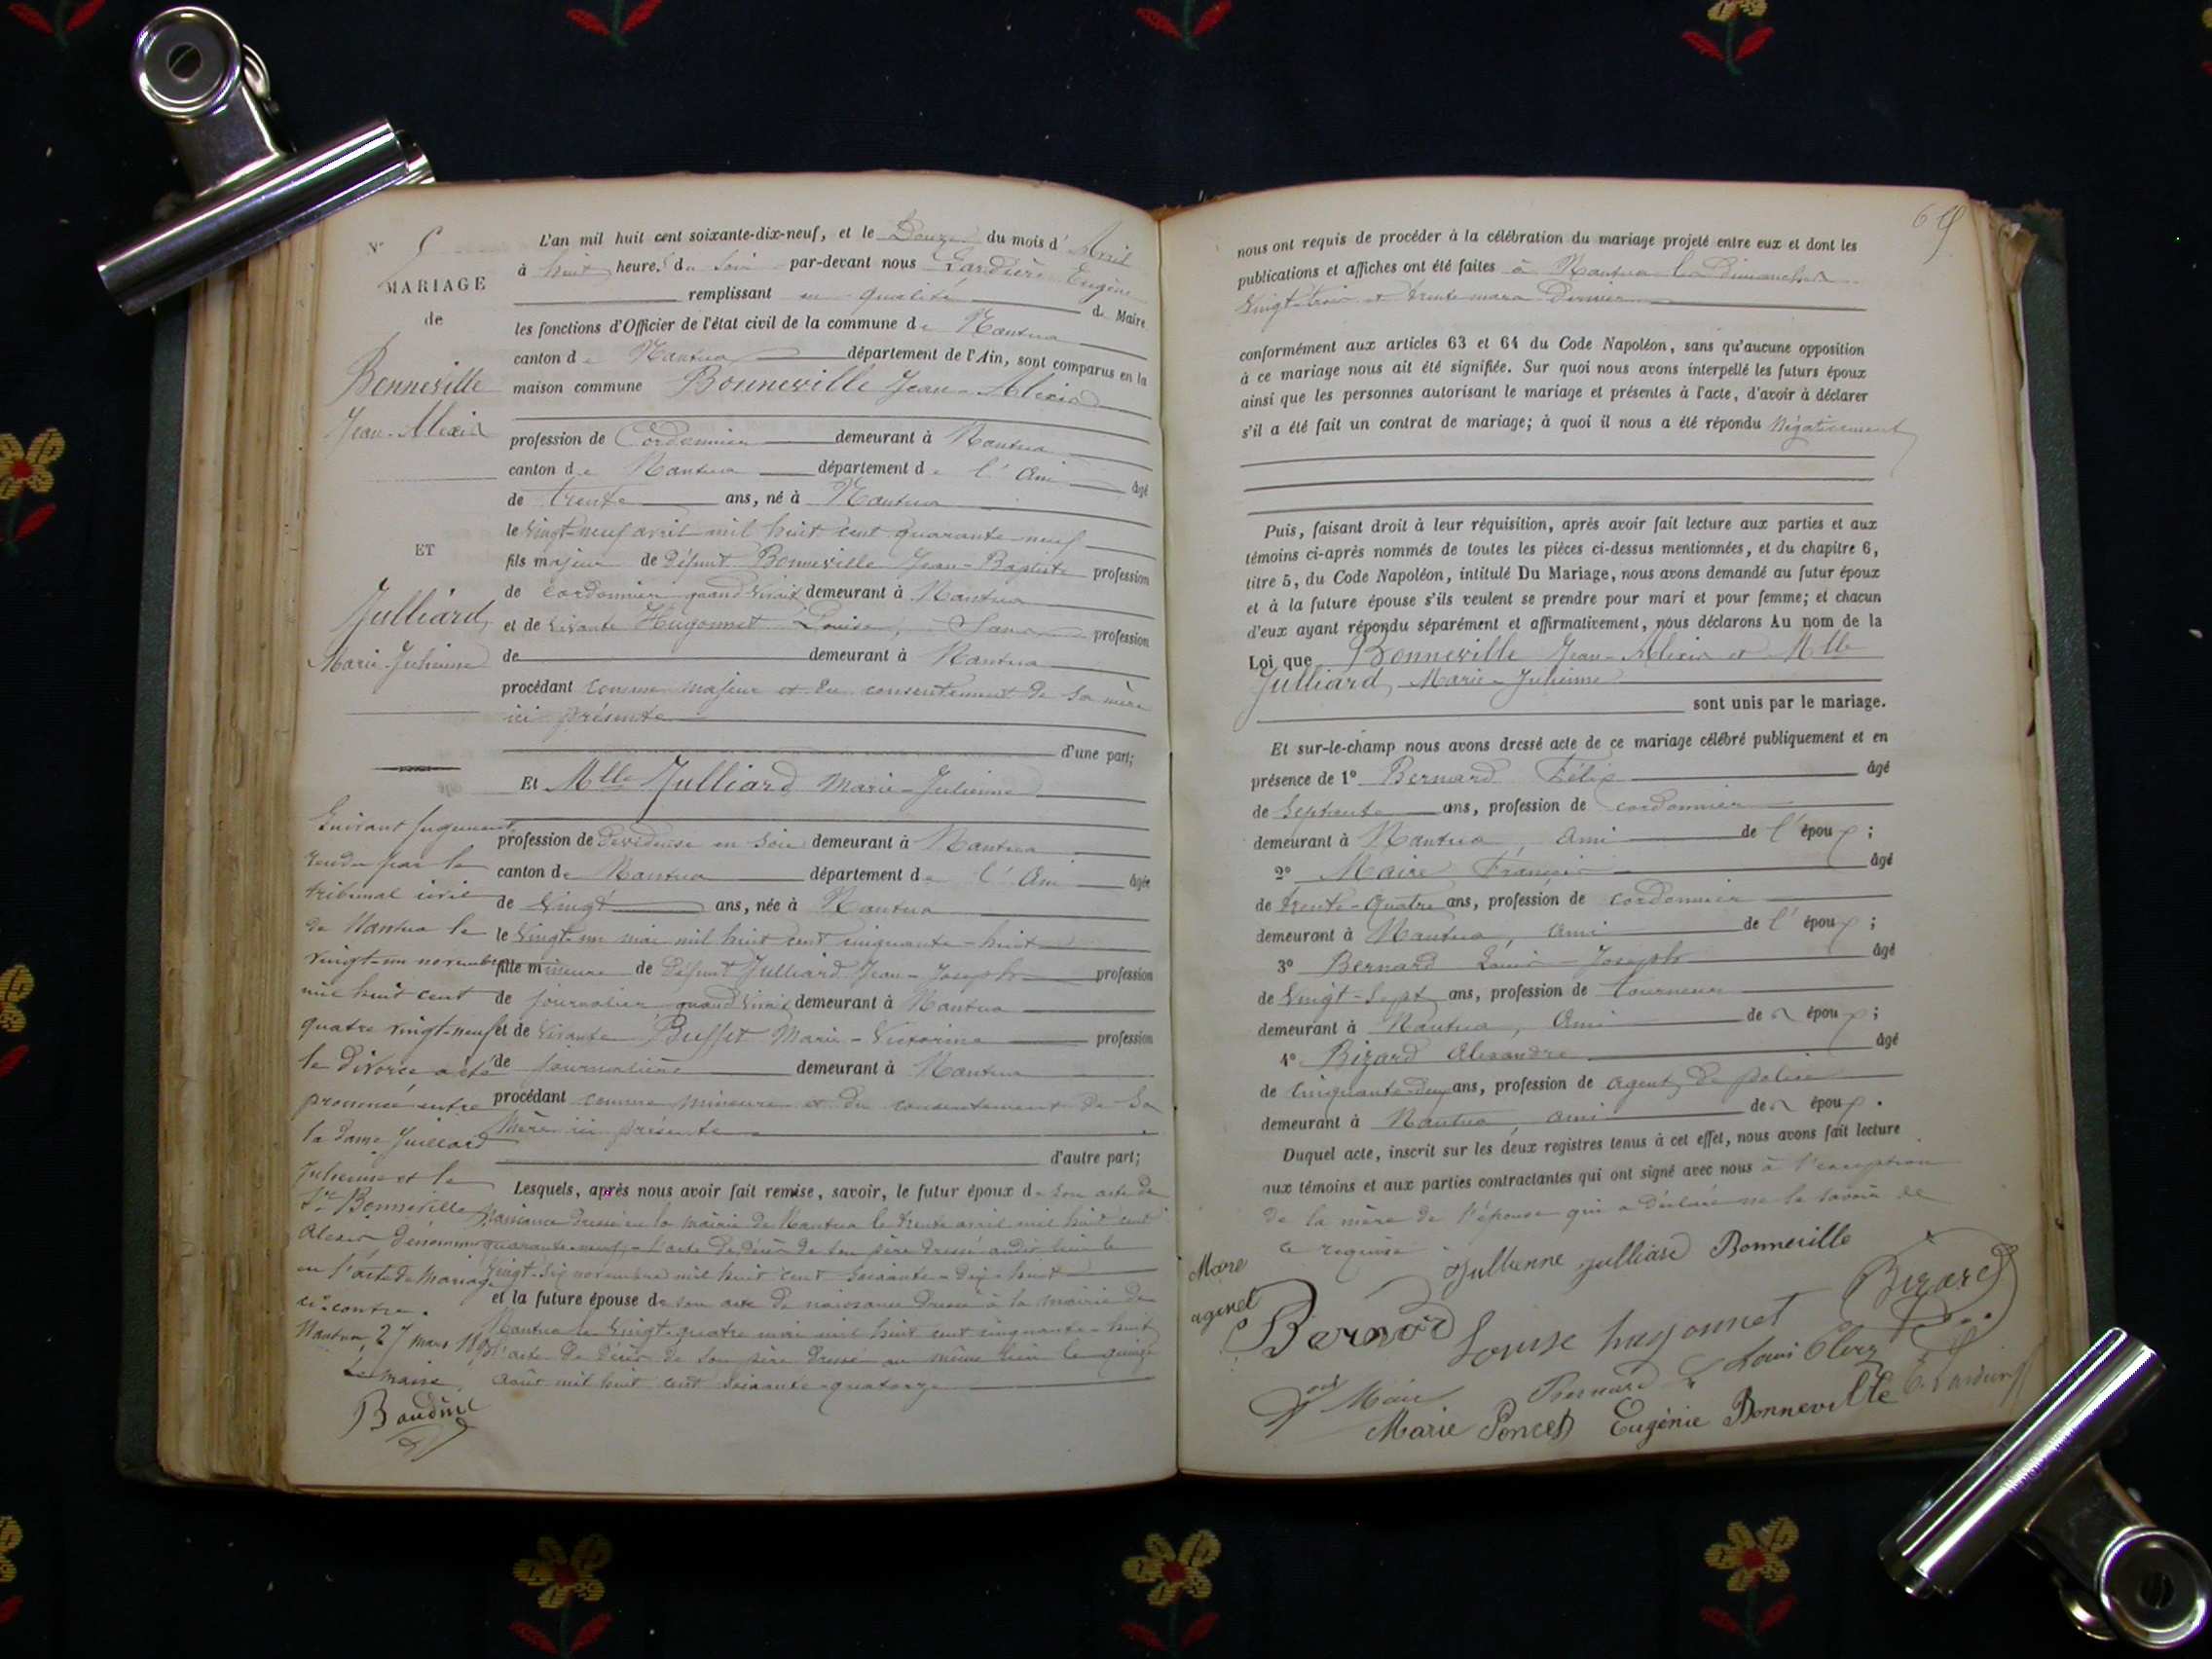 N° 5
MARIAGE
de
Bonneville
Jean-Alexis
ET
Julliard
Marie-Julienne
Suivant jugement
rendu par le
tribunal civil
de Nantua le
vingt-un novembre
mil huit cent
quatre vingt-neuf
le divorce a été
prononcé entre
la dame Juillard
Julienne et le
Sr Bonneville
Alexis dénommés
en l'acte de mariage
ci-contre.
Nantua, 27 mars
Le maire
Baudin
L'an mil huit cent soixante-dix-neuf, et le Douze du mois d'Avril
à huit heures du soir par-devant nous Lardière Eugène
remplissant en qualité de Maire
les fonctions d'Officier de l'état civil de la commune de Nantua
canton de Nantua département de l'Ain, sont comparus en la
maison commune Bonneville Jean-Alexis
profession de Cordonnier demeurant à Nantua
canton de Nantua département de l'Ain âgé
de trente ans, né à Nantua
le vingt-neuf avril mil huit cent quarante-neuf
fils majeur de Défunt Bonneville Jean-Baptiste profession
de cordonnier quand vivait demeurant à Nantua
et de vivante Hugonnet Louise, Sans profession
de demeurant à Nantua
procédant comme majeur et du consentement de sa mère
ici présente
d'une part;
Et Mlle Julliard Marie-Julienne
profession de dévideuse en soie demeurant à Nantua
canton de Nantua département de l'Ain âgée
de vingt ans, née à Nantua
le vingt-un mai mil huit cent cinquante-huit
fille mineure de Défunt Julliard Jean-Joseph profession
de journalier quand vivait demeurant à Nantua
et de vivante Buffet Marie-Victorine profession
de journalière demeurant à Nantua
procédant comme mineure et du consentement de sa
Mère ici présente
d'autre part;
Lesquels, après nous avoir fait remise, savoir, le futur époux de son acte de
Naissance dressé en la mairie de Nantua le trente avril mil huit cent
quarante-neuf, l'acte de décès de son père dressé audit lieu le
vingt-six novembre mil huit cent soixante-dix-huit
et la future épouse de son acte de naissance dressé à la mairie de
Nantua le vingt-quatre mai mil huit cent cinquante-huit
l'acte de décès de son père dressé au même lieu le quinze
août mil huit cent soixante-quatorze
69
nous ont requis de procéder à la célébration du mariage projeté entre eux et dont les
publications et affiches ont été faites à Nantua les Dimanches
vingt-trois et trente mars Dernier
conformément aux articles 63 et 64 du Code Napoléon, sans qu'aucune opposition
à ce mariage nous ait été signifiée. Sur quoi nous avons interpellé les futurs époux
ainsi que les personnes autorisant le mariage et présentes à l'acte, d'avoir à déclarer
s'il a été fait un contrat de mariage; à quoi il nous a été répondu Négativement
Puis, faisant droit à leur réquisition, après avoir fait lecture aux parties et aux
témoins ci-après nommés de toutes les pièces ci-dessus mentionnées, et du chapitre 6,
titre 5, du Code Napoléon, intitulé Du Mariage, nous avons demandé au futur époux
et à la future épouse s'ils veulent se prendre pour mari et pour femme; et chacun
d'eux ayant répondu séparément et affirmativement, nous déclarons Au nom de la
Loi que Bonneville Jean-Alexis et Mlle
Julliard Marie-Julienne
sont unis par le mariage.
Et sur-le-champ nous avons dressé acte de ce mariage célébré publiquement et en
présence de 1° Bernard Félix âgé
de septante ans, profession de cordonnier
demeurant à Nantua, ami de l'époux;
2° Maire François âgé
de trente-quatre ans, profession de cordonnier
demeurant à Nantua, ami de l'époux;
3° Bernard Louis-Joseph âgé
de vingt-sept ans, profession de tourneur
demeurant à Nantua, ami de époux;
4° Bizard Alexandre âgé
de cinquante-deux ans, profession de agent de police
demeurant à Nantua, ami de époux.
Duquel acte, inscrit sur les deux registres tenus à cet effet, nous avons fait lecture
aux témoins et aux parties contractantes qui ont signé avec nous à l'exception
de la mère de l'épouse qui a déclaré ne le savoir de
ce requise
Jullienne Julliard Bonneville
Bernard Louise hugonnet Bizard
Maire Bernard Louis Clerc E. Lardière
Marie Poncet Eugénie Bonneville